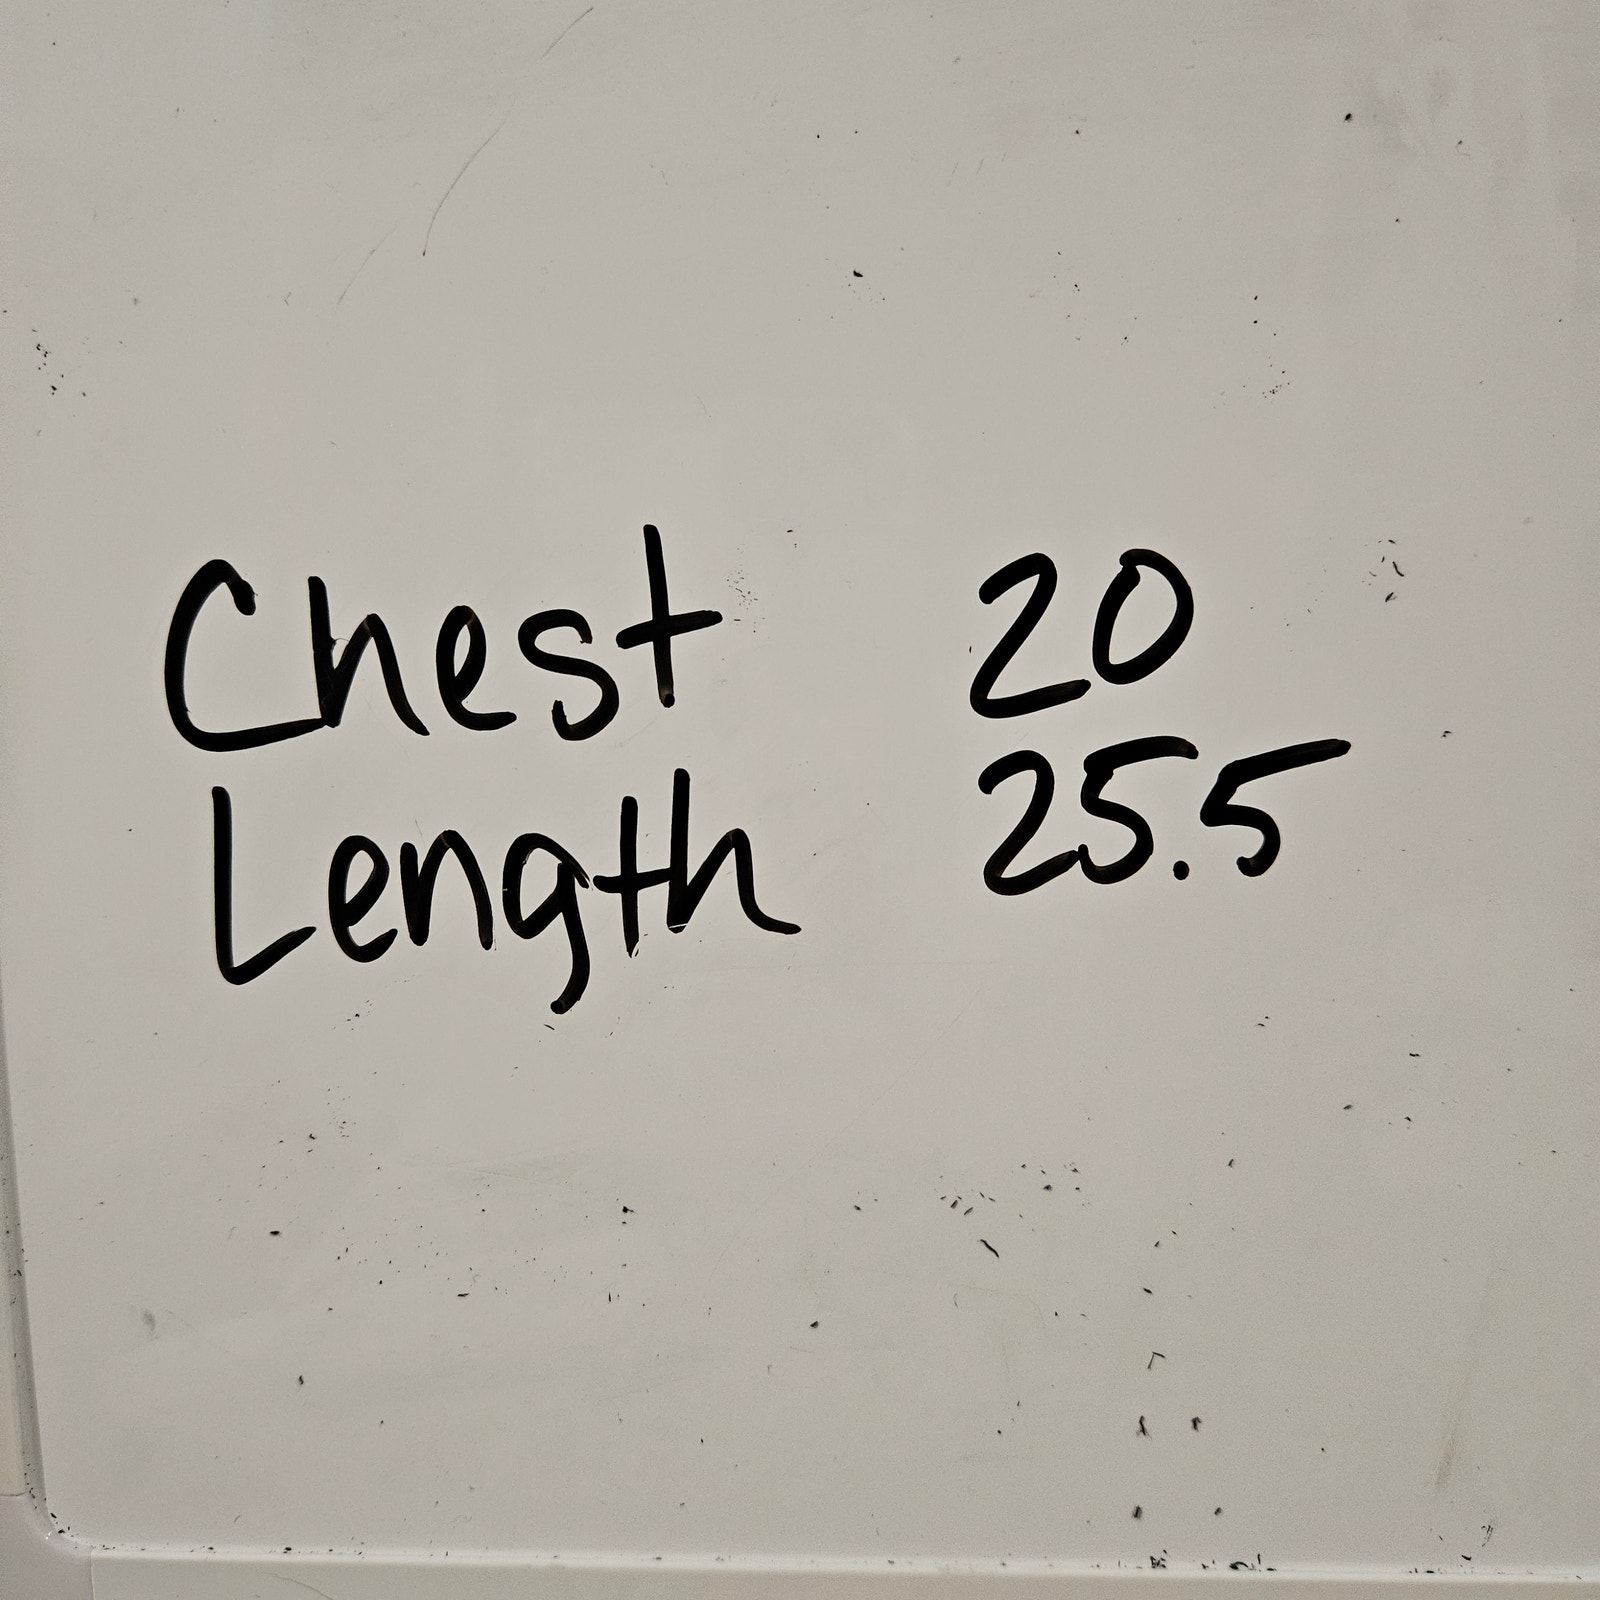 Chest 20
Length 25.5